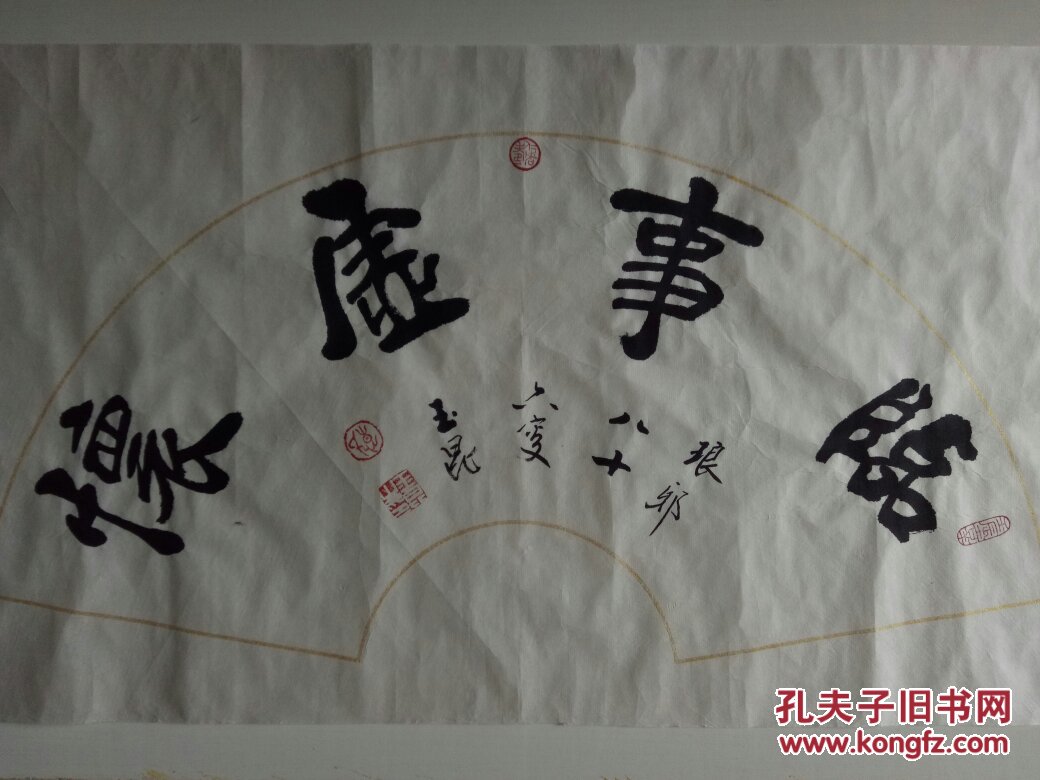 臨事虛懷
琅邪
八十
六叟
玉昆
孔夫子旧书网
www.kongfz.com